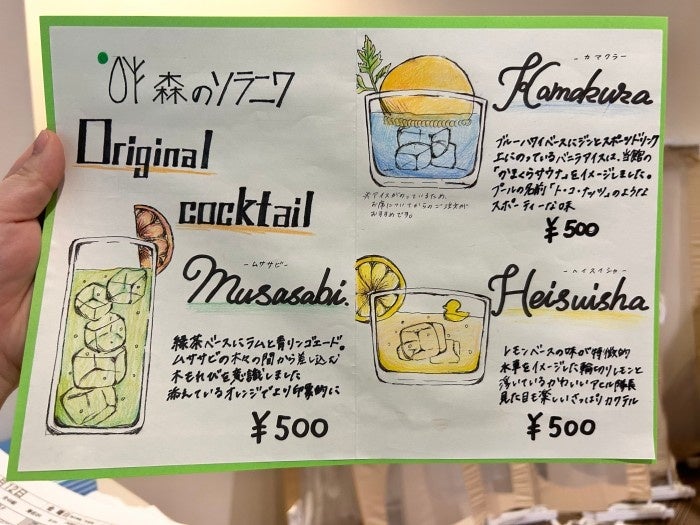 森のソラニワ
Original
cocktail
ームササビー
Musasabi.
緑茶ベースにラムと青リンゴエード。
ムササビの木々の間から差し込む
木もれびを意識しました
添えているオレンジでより印象的に
¥500
ーカマクラー
Kamakura
ブルーハワイベースにジンとスポーツドリンク
上にのっているバニラアイスは、当館の
「かまくらサウナ」をイメージしました。
プールの名前「ト・コ・ナッツ」のような
スポーティーな味
¥500
※アイスがのっているため、
お席についてからのご注文が
おすすめです。
ーヘイスイシャー
Heisuisha
レモンベースの味が特徴的
水車をイメージした輪切りレモンと
浮いているかわいいアヒル隊長
見た目も楽しいさっぱりカクテル
¥500
12日